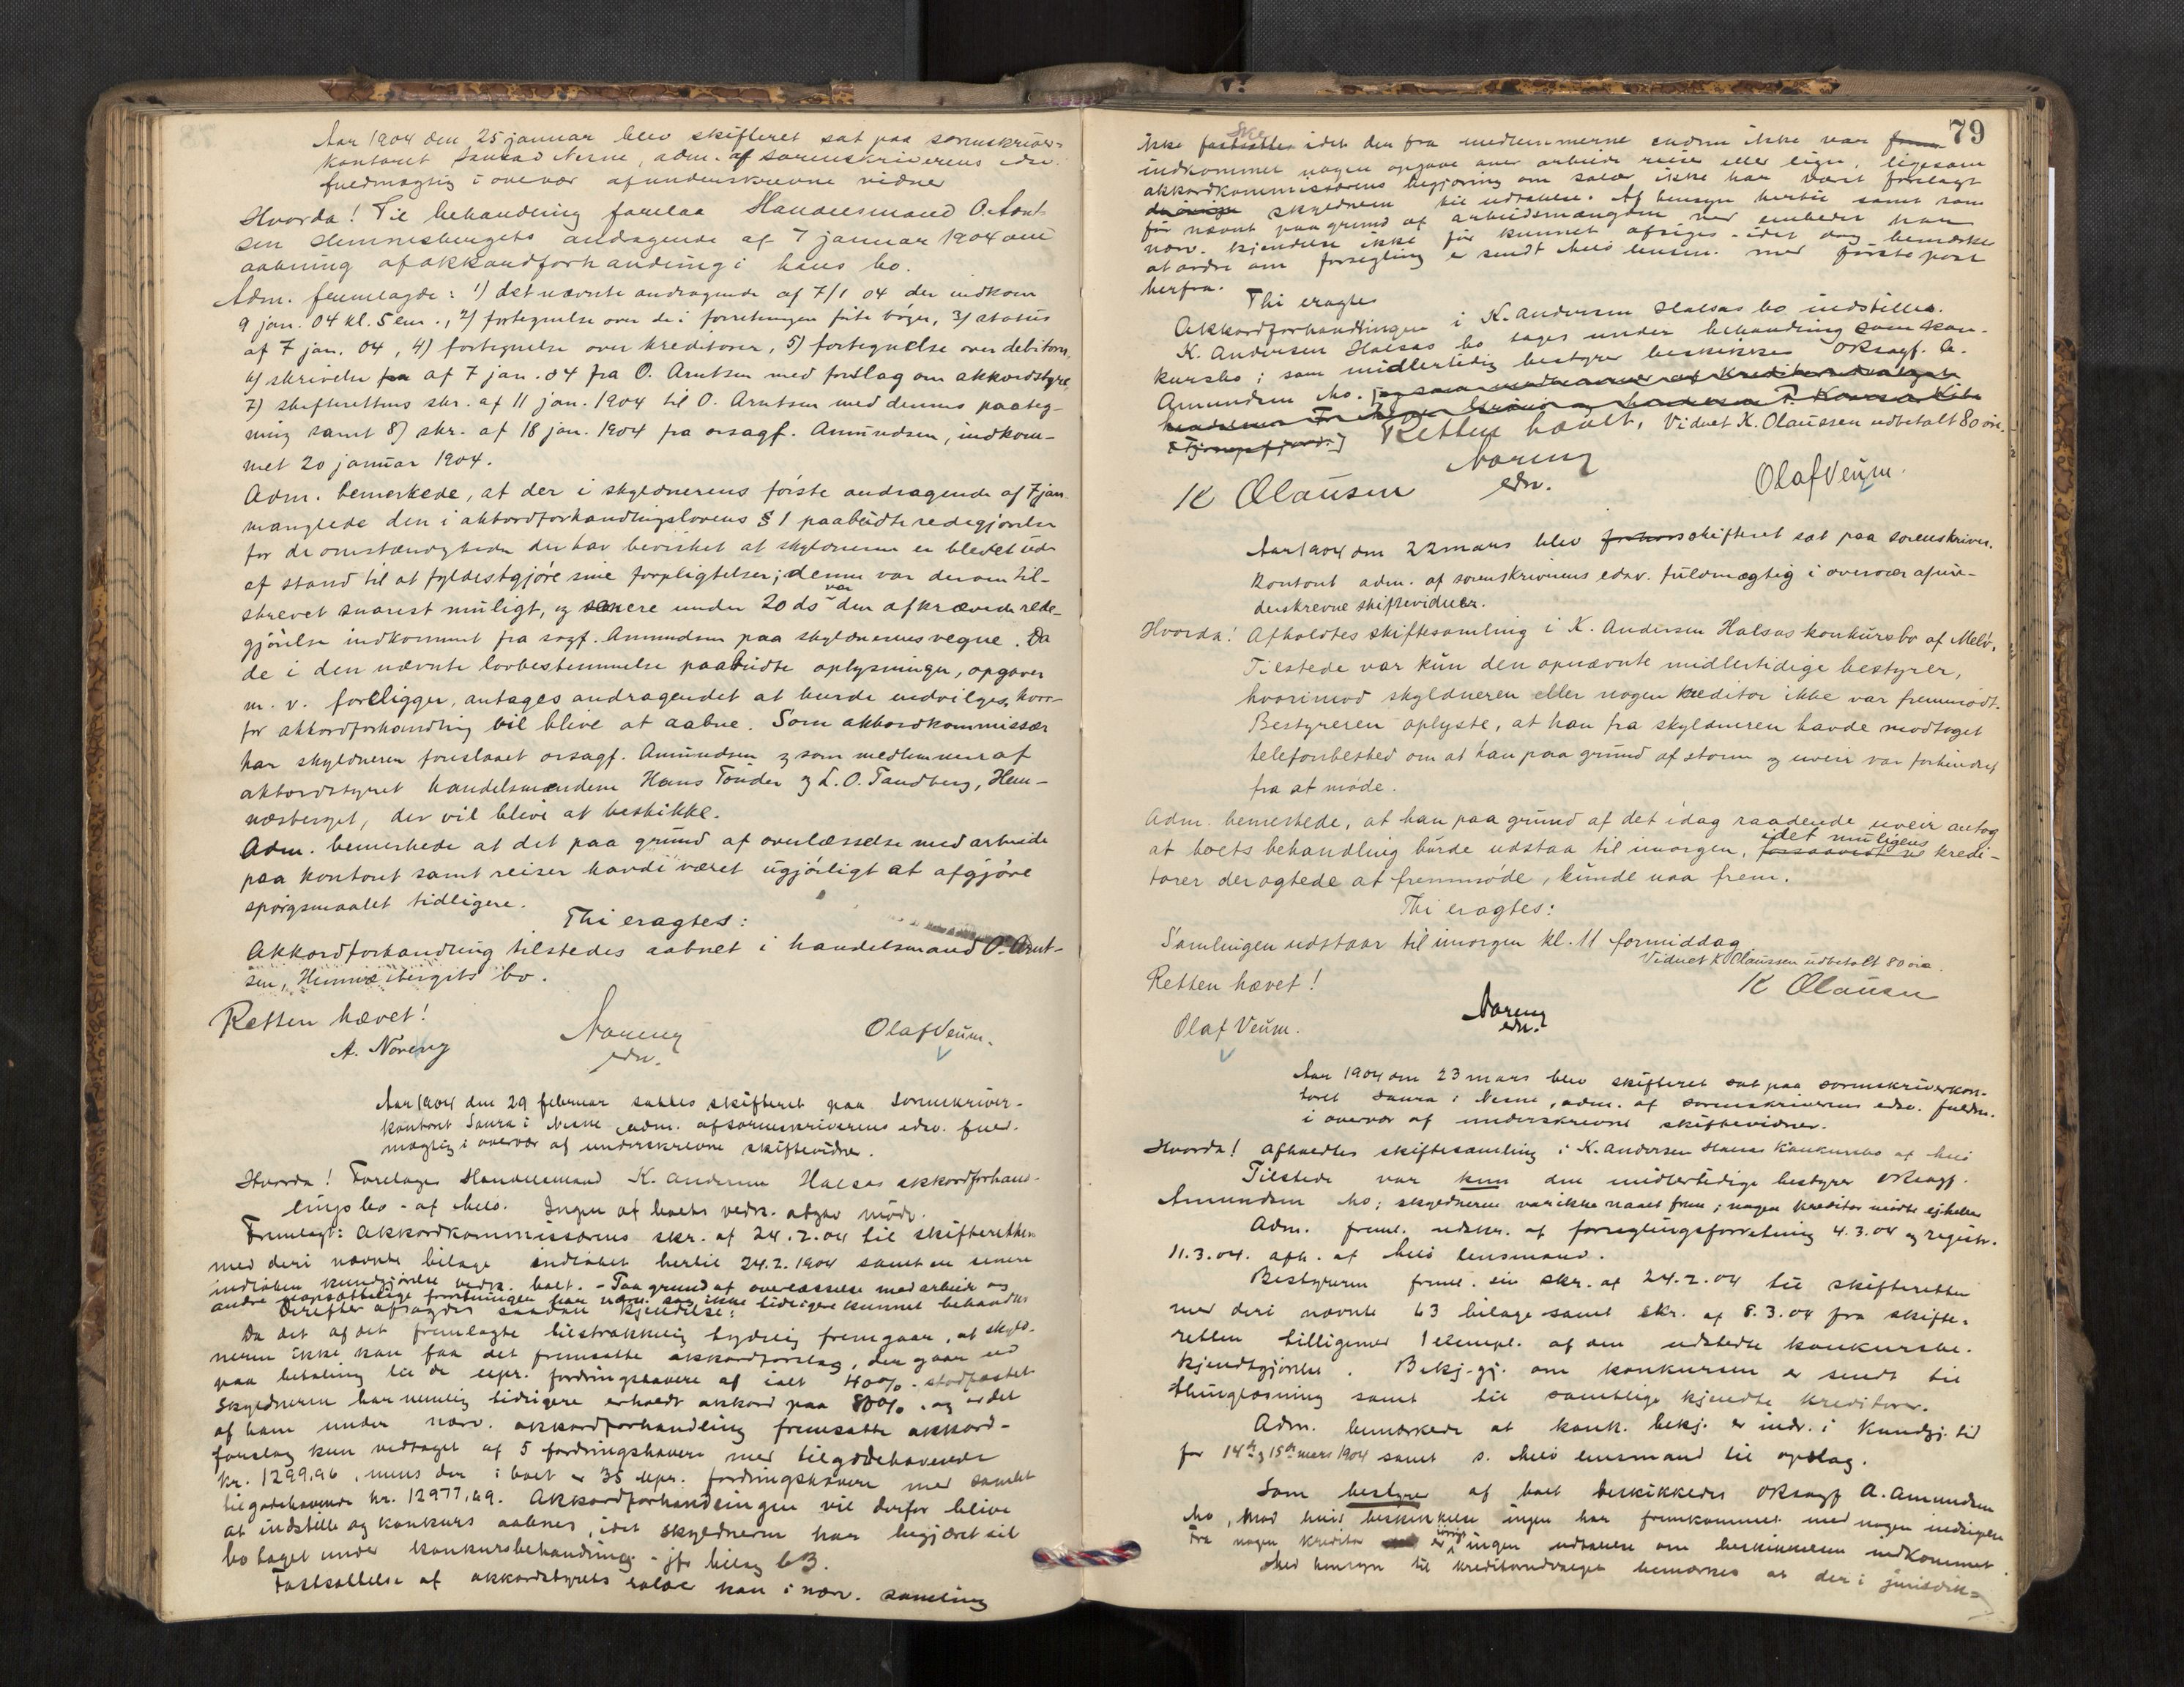 Aar 1904 den 25 januar blev skifteret sat paa sorenskriver=
kontoret Nesne, adm. af sorenskriverens edsv.
fuldmægtig i overvær af underskrevne vidner
Hvorda! Til behandling forelaa Handelsmand O. Arnt-
sen Hemnesbergets andragende af 7 januar 1904 om
aabning af akkordforhandling i hans bo.
Adm. fremlagde: 1) det nævnte andragende af 7/1 04 der indkom
9 jan. 04 kl. 5 em., 2) fortegnelse over de i forretningen førte bøger, 3) status
af 7 jan. 04, 4) fortegnelse over kreditorer, 5) fortegnelse over debitorer,
6) skrivelse fra af 7 jan. 04 fra O. Arntsen med forslag om akkordstyre,
7) skifterettens skr. af 11 jan. 1904 til O. Arntsen med dennes paateg-
ning samt 8) skr. af 18 jan. 1904 fra orsagf. Amundsen, indkom-
met 20 januar 1904.
Adm. bemerkede, at der i skyldnerens første andragende af 7 jan.
manglede den i akkordforhandlingslovens § 1 paabudte redegjørelse
for de omstændigheder der har bevirket at skyldneren er blevet ude
af stand til at fyldestgjøre sine forpligtelser; denne var derom til-
skrevet snarest muligt, og senere under 20 ds var den afkrævede rede-
gjørelse indkommet fra sagf. Amundsen paa skyldnerens vegne. Da
de i den nævnte lovbestemmelse paabudte oplysninger, opgaver
m. v. foreligger, antages andragendet at burde indvilges, hvor-
for akkordforhandling vil blive at aabne. Som akkordkommissær
har skyldneren foreslaaet orsagf. Amundsen og som medlemmer af
akkordstyret handelsmændene Hans Tønder og L. O. Tandberg, Hem-
næsberget, der vil blive at beskikke.
Adm. bemerkede at det paa grund af overlæsselse med arbeide
paa kontoret samt reiser havde været ugjørligt at afgjøre
spørgsmaalet tidligere.
Thi eragtes:
Akkordforhandling tilstedes aabnet i handelsmand O. Arnt-
sen, Hemnæsbergets bo.
Retten hævet!
A. Noreng
Noreng
edsv.
Olaf Veum.
Aar 1904 den 29 februar sattes skifteret paa Sorenskriver-
kontoret Saura i Nesne adm. af sorenskriverens edsv. fuld-
mægtig i overvær af underskrevne skiftevidner.
Hvorda! Foretages Handelsmand K. Andersen Halsas akkordforhand-
lingsbo - af Melø. Ingen af boets vedk. afgav møde.
Fremlagt: Akkordkommissærens skr. af 24.2.04 til skifteretten
med deri nævnte bilage indløbet hertil 24.2.1904 samt en senere
indløben kundgjørelse vedk. boet. - Paa grund af overlæsselse med arbeide og
andre uopsættelige forretninger har nærv. sag ikke tidligere kunnet behandles
Derefter afsagdes saadan Kjendelse:
Da det af det fremlagte tilstrækkelig tydelig fremgaar, at skyld-
neren ikke kan faa det fremsatte akkordforslag, der gaar ud
paa betaling til de upr. fordringshavere af ialt 40% stadfæstet
Skyldneren har nemlig tidligere erholdt akkord paa 80% og er det
af ham under nærv. akkordforhandling fremsatte akkord-
forslag kun vedtaget af 5 fordringshavere med tilgodehavende
kr. 1299,96, mens der i boet er 35 upr. fordringshavere med samlet
tilgodehavende kr. 12977,69. Akkordforhandlingen vil derfor blive
at indstille og konkurs aabnes, idet skyldneren har begjæret sit
bo taget under konkursbehandling - jfr bilag 63.
Fastsættelse af akkordstyrets salær kan i nærv. samling
79
ikke ske idet der fra medlemmerne endnu ikke var
indkommet nogen opgave over arbeide reise eller lign., ligesom
akkordkommissærens begjæring om salær ikke har været forelagt
skyldneren til udtalelse. Af hensyn hertil samt som
før nævnt paa grund af arbeidsmængden ved embedet har
nærv. kjendelse ikke før kunnet afsiges - idet dog bemerkes
at ordre om forsegling er sendt Melø lensm. med første post
herfra.
Thi eragtes
Akkordforhandlingen i K. Andersen Halsas bo indstilles.
K. Andersen Halsas bo tages under behandling som kon-
kursbo; som midlertidig bestyrer beskikkes orsagf. A.
Amundsen Mo. [og som medlemmer af Kreditorudvalget
Retten hævet. Vidnet K. Olaussen udbetalt 80 øre.
K Olausen
Noreng
edsv.
Olaf Veum.
Aar 1904 den 22 mars blev skifteret sat paa sorenskriver-
kontoret adm. af sorenskriverens edsv. fuldmægtig i overvær af un-
derskrevne skiftevidner.
Hvorda! Afholdtes skiftesamling i K. Andersen Halsas konkursbo af Melø.
Tilstede var kun den opnævnte midlertidige bestyrer,
hvorimod skyldneren eller nogen kreditor ikke var fremmødt.
Bestyreren oplyste, at han fra skyldneren havde modtaget
telefonbesked om at han paa grund af storm og uveir var forhindret
fra at møde.
Adm. bemerkede, at han paa grund af det idag raadende uveir antog
at boets behandling burde udstaa til imorgen, idet muligens kredi-
torer der agtede at fremmøde, kunde naa frem.
Thi eragtes:
Samlingen udstaar til imorgen kl. 11 formiddag
Vidnet K Olaussen udbetalt 80 øre.
Retten hævet!
K Olausen
Noreng
edsv.
Olaf Veum.
Aar 1904 den 23 mars blev skifteret sat paa sorenskriverkon-
toret Saura i Nesne, adm. af sorenskriverens edsv. fuldm.
i overvær af underskrevne skiftevidner.
Hvorda! Afholdtes skiftesamling i K. Andersen Halsas Konkursbo af Melø
Tilstede var kun den midlertidige bestyrer orsagf.
Amundsen Mo; skyldneren var ikke naaet frem; nogen kreditor mødte ejheller
Adm. freml. udskr. af forseglingsforretning 4.3.04 og registr.
11.3.04. afh. af Melø lensmand.
Bestyreren freml. sin skr. af 24.2.04 til skifteretten
med deri nævnte 63 bilage samt skr. af 8.3.04 fra skifte-
retten tilligemed 1 exempl. af den udstedte konkursbe-
kjendtgjørelse. Bekj.gj. om konkursen er sendt til
thinglæsning samt til samtlige kjendte kreditorer.
Adm. bemærkede at konk. bekj. er indr. i Kundgj. tid
for 14de og 15de mars 1904 samt s. Melø lensmand til opslag.
Som bestyrer af boet beskikkedes orsagf A. Amundsen
Mo, mod hvis beskikkelse ingen har fremkommet med nogen indsigelse
Fra nogen kreditor er iøvrigt ingen udtalelse om beskikkelsen indkommet.
Med hensyn til kreditorudvalget bemærkes at der i jurisdik=